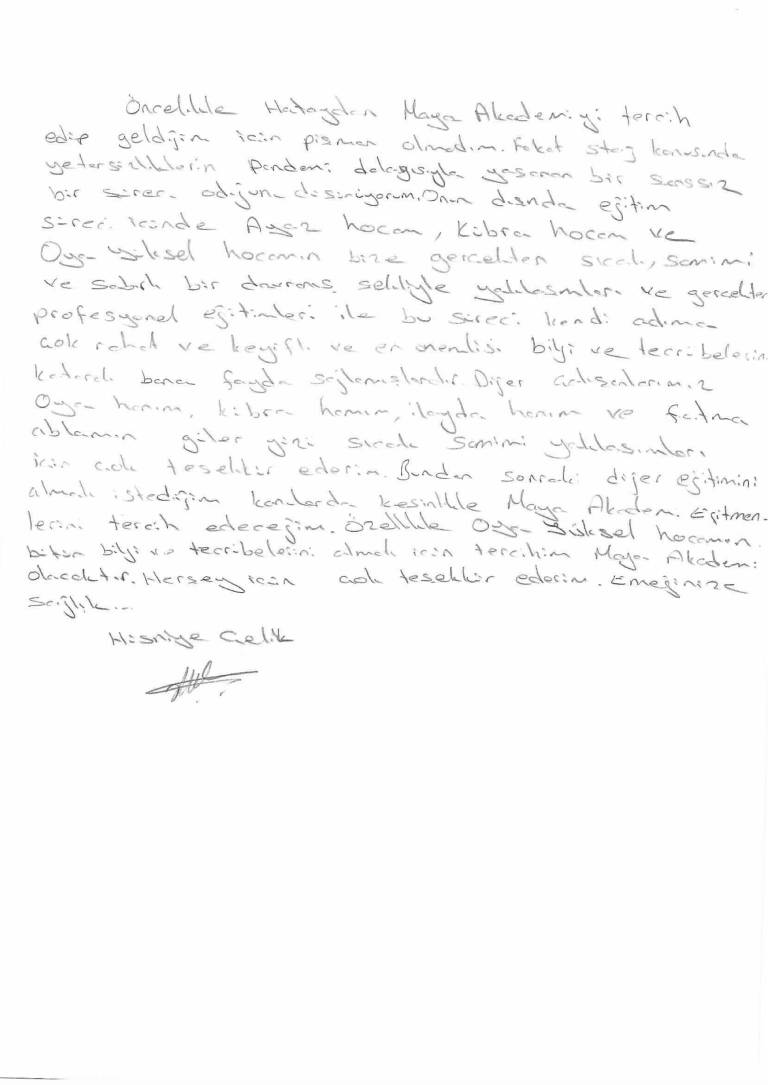 Öncelikle Hataydan Maya Akademiyi tercih
edip geldiğim için pişman olmadım. Fakat staj konusunda
yetersizliklerin Pandemi dolayısıyla yaşanan bir şanssız
bir süreç olduğunu düşünüyorum. Onun dışında eğitim
süreci içinde Ayaz hocam, Kübra hocam ve
Oya Yüksel hocamın bize gerçekten sıcak, samimi
ve sabırlı bir davranış şekliyle yaklaşımları ve gerçekten
profesyonel eğitimleri ile bu süreci kendi adıma
çok rahat ve keyifli ve en önemlisi bilgi ve tecrübelerin
katarak bana fayda sağlamışlardır. Diğer çalışanlarımız
Oya hanım, Kübra hanım, ilayda hanım ve fatma
ablamın güler yüzü sıcak samimi yaklaşımları
için çok teşekkür ederim. Bundan sonraki diğer eğitimini
almak istediğim konularda kesinlikle Maya Akademi Eğitmen-
lerini tercih edeceğim. Özellikle Oya Yüksel hocamın
bütün bilgi ve tecrübelerini almak için tercihim Maya Akademi
olacaktır. Herşey için çok teşekkür ederim. Emeğinize
sağlık...
Hüsniye Çelik